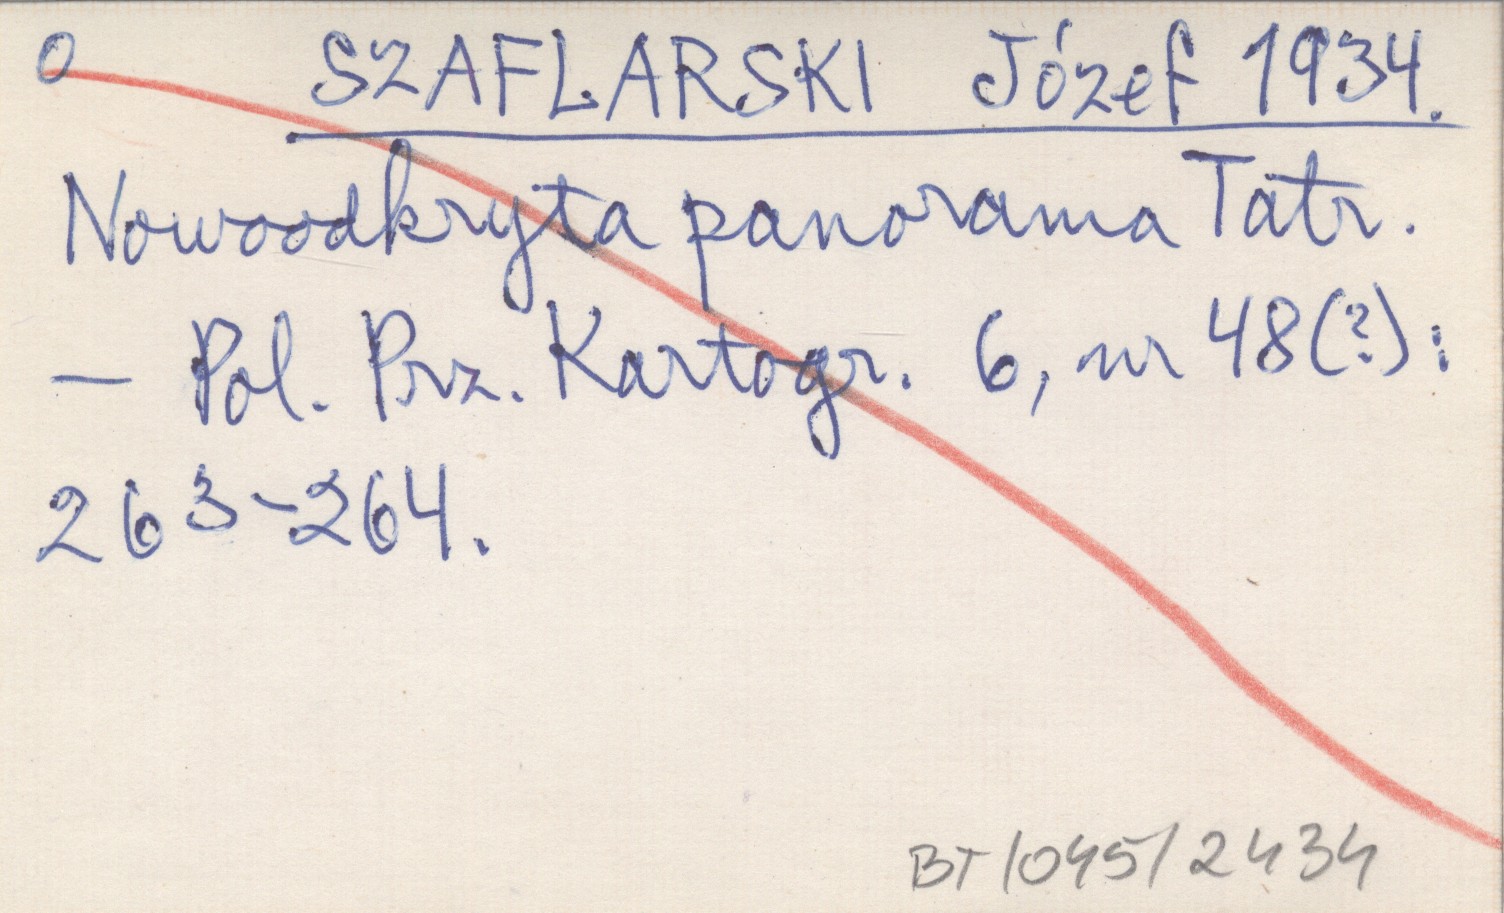 O SZAFLARSKI Józef 1934.
Nowoodkryta panorama Tatr.
— Pol. Prz. Kartogr. 6, nr 48(?):
263-264.
BT/045/2434